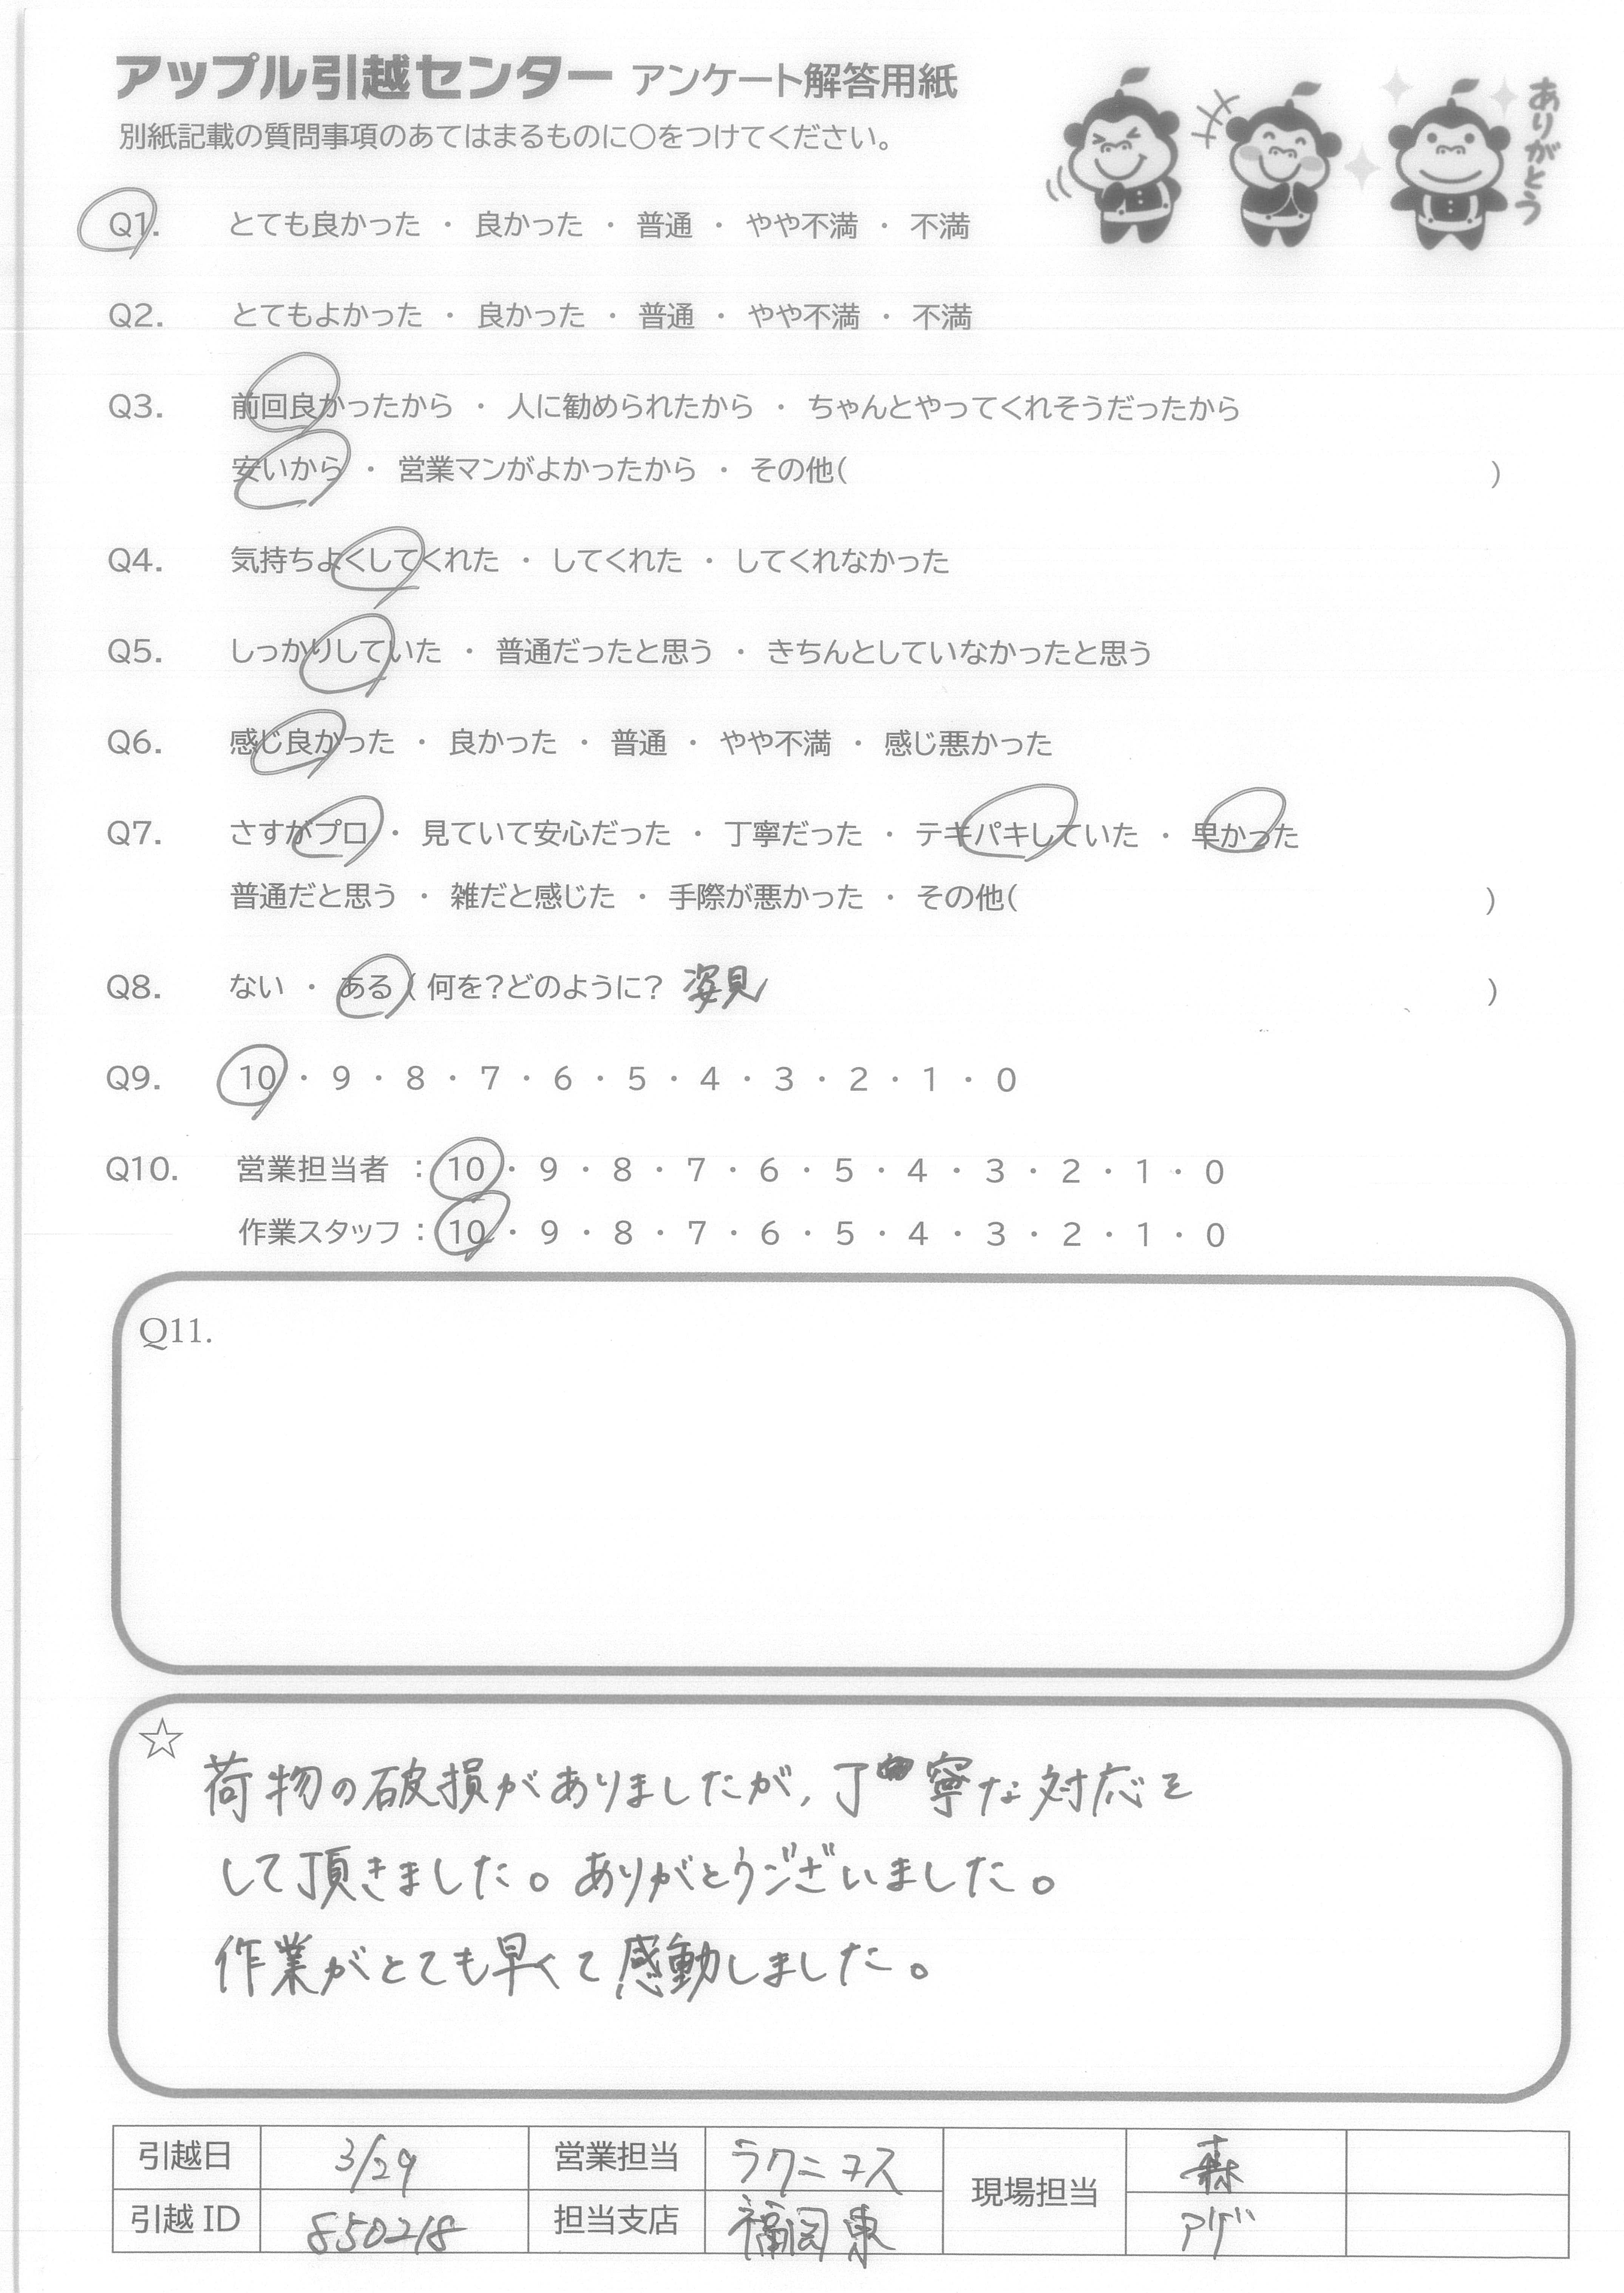 アップル引越センター アンケート解答用紙
別紙記載の質問事項のあてはまるものに○をつけてください。
ありがとう
Q1. とても良かった ・ 良かった ・ 普通 ・ やや不満 ・ 不満
Q2. とてもよかった ・ 良かった ・ 普通 ・ やや不満 ・ 不満
Q3. 前回良かったから ・ 人に勧められたから ・ ちゃんとやってくれそうだったから
安いから ・ 営業マンがよかったから ・ その他( )
Q4. 気持ちよくしてくれた ・ してくれた ・ してくれなかった
Q5. しっかりしていた ・ 普通だったと思う ・ きちんとしていなかったと思う
Q6. 感じ良かった ・ 良かった ・ 普通 ・ やや不満 ・ 感じ悪かった
Q7. さすがプロ ・ 見ていて安心だった ・ 丁寧だった ・ テキパキしていた ・ 早かった
普通だと思う ・ 雑だと感じた ・ 手際が悪かった ・ その他( )
Q8. ない ・ ある ( 何を?どのように? 姿見 )
Q9. 10 ・ 9 ・ 8 ・ 7 ・ 6 ・ 5 ・ 4 ・ 3 ・ 2 ・ 1 ・ 0
Q10. 営業担当者 : 10 ・ 9 ・ 8 ・ 7 ・ 6 ・ 5 ・ 4 ・ 3 ・ 2 ・ 1 ・ 0
作業スタッフ : 10 ・ 9 ・ 8 ・ 7 ・ 6 ・ 5 ・ 4 ・ 3 ・ 2 ・ 1 ・ 0
Q11.
☆ 荷物の破損がありましたが、丁寧な対応を
して頂きました。ありがとうございました。
作業がとても早くて感動しました。
引越日 3/29 営業担当 ラクニコス 現場担当 森
引越ID 850218 担当支店 福岡東 アゲ